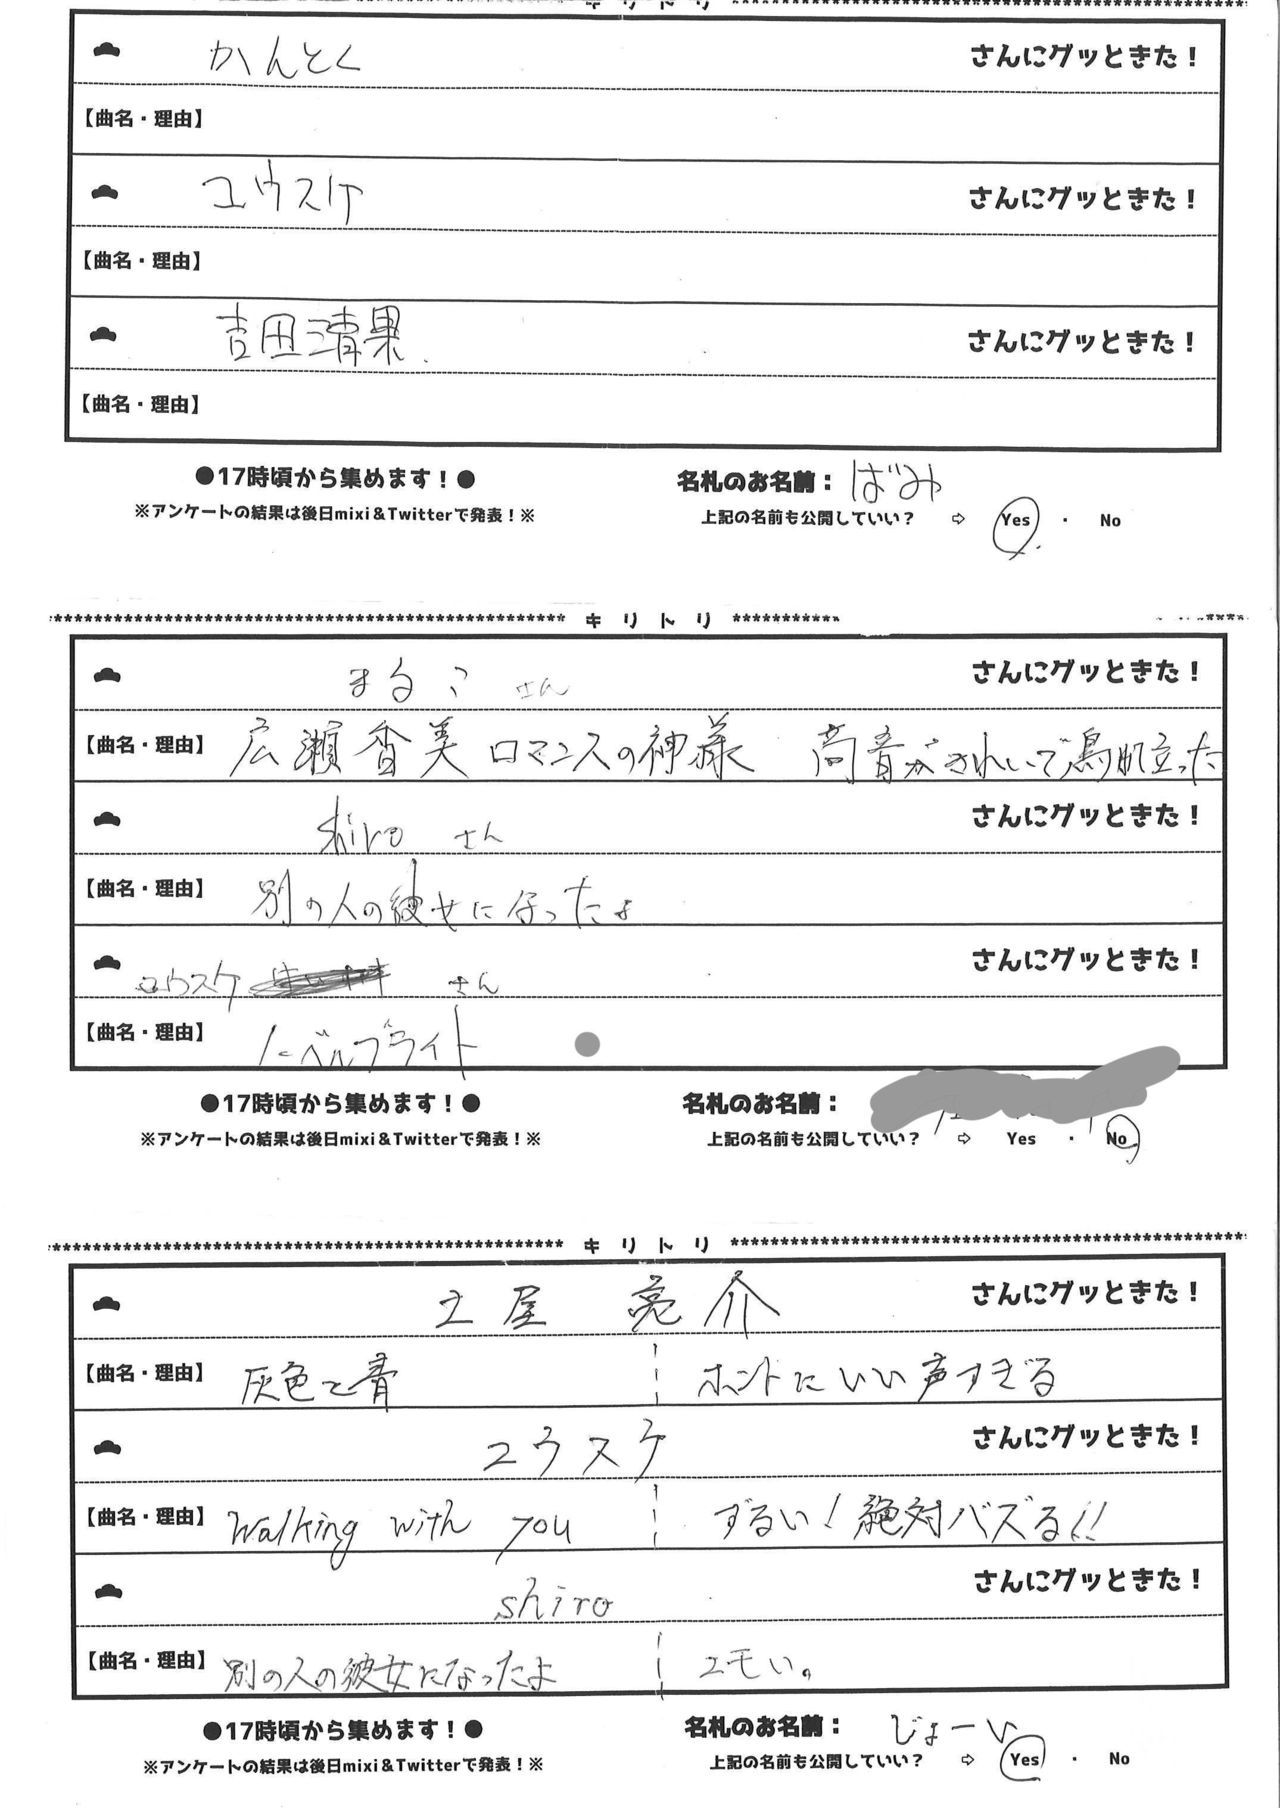 キリトリ
かんとく さんにグッときた！
【曲名・理由】
ユウスケ さんにグッときた！
【曲名・理由】
吉田清果 さんにグッときた！
【曲名・理由】
●17時頃から集めます！● 名札のお名前： ばみ
※アンケートの結果は後日mixi＆Twitterで発表！※ 上記の名前も公開していい？ ⇨ Yes ・ No
************************************************** キリトリ ***********
まるこ さん さんにグッときた！
【曲名・理由】 広瀬香美 ロマンスの神様 高音がきれいで鳥肌立った
shiro さん さんにグッときた！
【曲名・理由】 別の人の彼女になったよ
ユウスケ さん さんにグッときた！
【曲名・理由】 ノーベルブライト
●17時頃から集めます！● 名札のお名前：
※アンケートの結果は後日mixi＆Twitterで発表！※ 上記の名前も公開していい？ ⇨ Yes ・ No
************************************************** キリトリ **************************************************
土屋 亮介 さんにグッときた！
【曲名・理由】 灰色と青 ホントにいい声すぎる
ユウスケ さんにグッときた！
【曲名・理由】 Walking with you ずるい！絶対バズる!!
shiro さんにグッときた！
【曲名・理由】 別の人の彼女になったよ エモい。
●17時頃から集めます！● 名札のお名前： じょーい
※アンケートの結果は後日mixi＆Twitterで発表！※ 上記の名前も公開していい？ ⇨ Yes ・ No